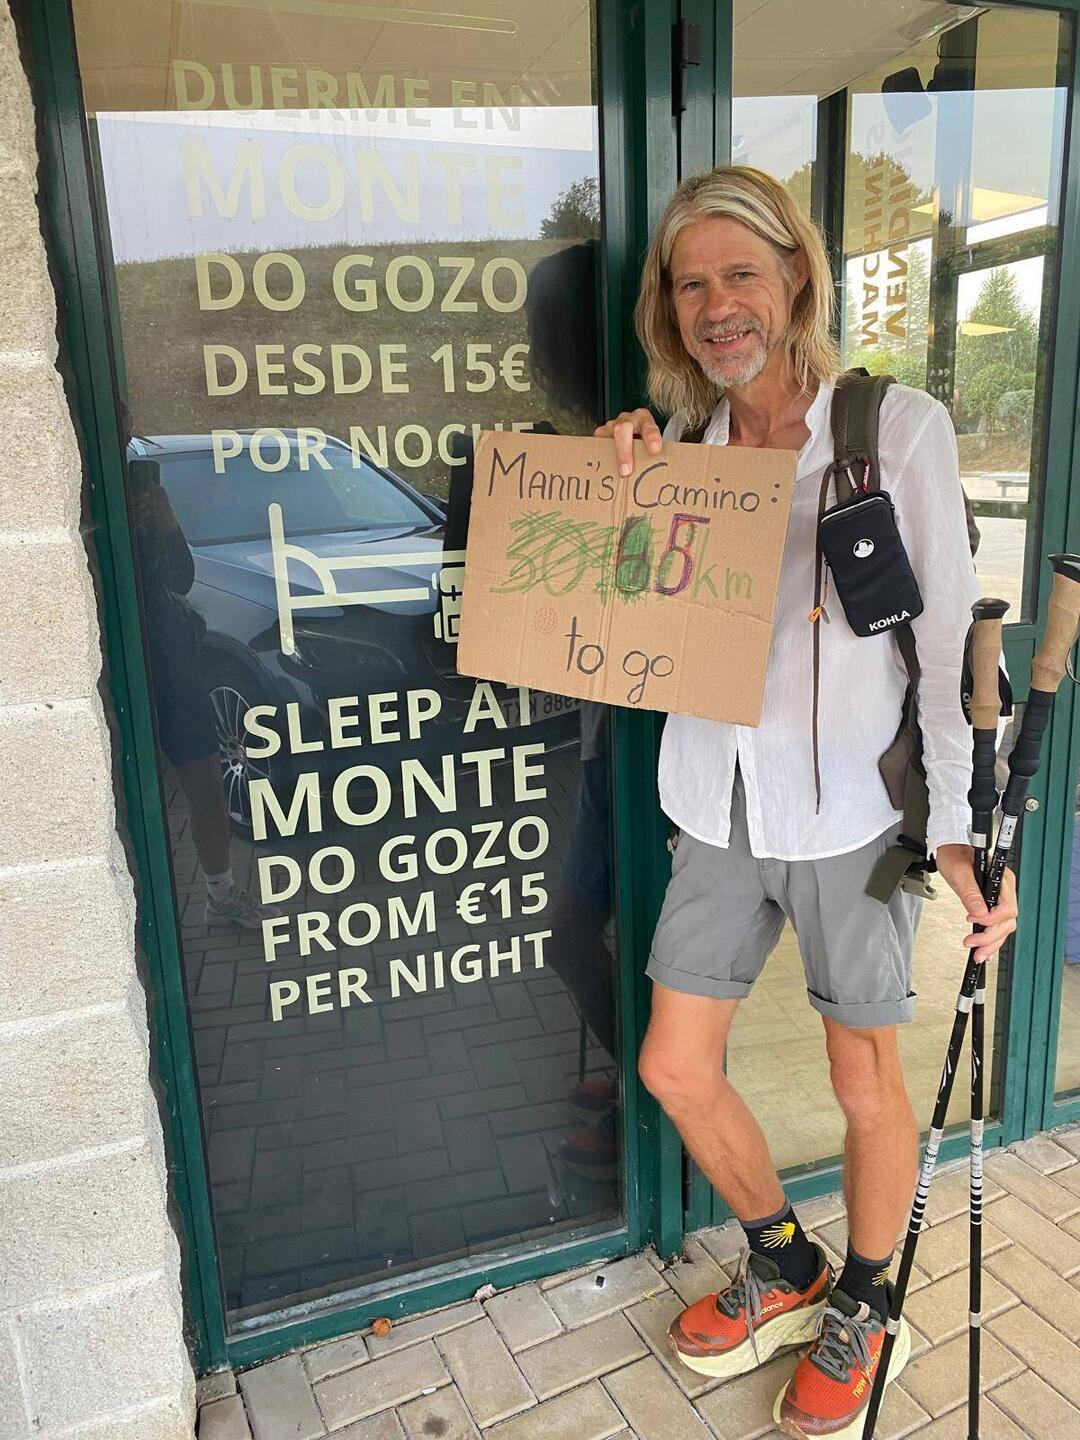 DUERME EN
MONTE
DO GOZO
DESDE 15€
POR NOCHE
SLEEP AT
MONTE
DO GOZO
FROM €15
PER NIGHT
Manni's Camino:
5 km
to go
KOHLA
MACHINES
new balance